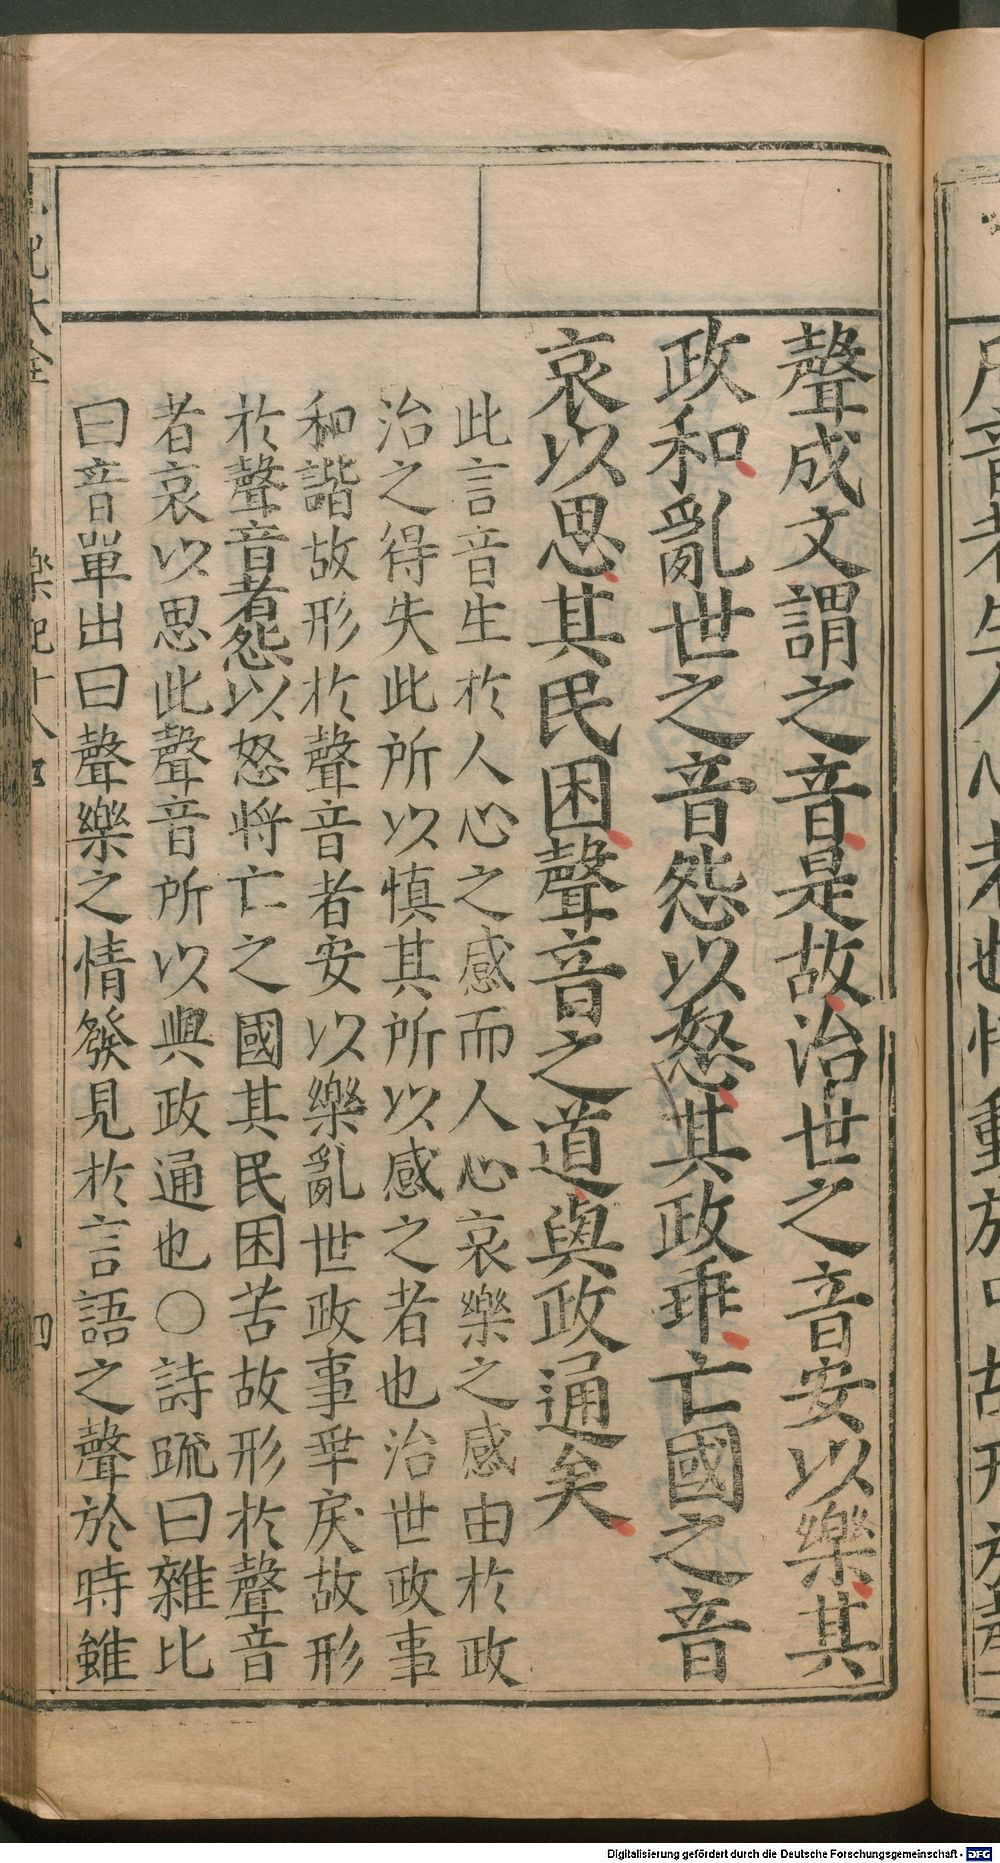 聲成文謂之音是故治世之音安以樂其
政和亂世之音怨以怒其政乖亡國之音
哀以思其民困聲音之道與政通矣
此言音生於人心之感而人心哀樂之感由於政
治之得失此所以慎其所以感之者也治世政事
和諧故形於聲音者安以樂亂世政事乖戾故形
於聲音者怨以怒將亡之國其民困苦故形於聲音
者哀以思此聲音所以與政通也○詩疏曰雜比
曰音單出曰聲樂之情發見於言語之聲於時雖
記大全
樂記十八
四
Digitalisierung gefördert durch die Deutsche Forschungsgemeinschaft - DFG